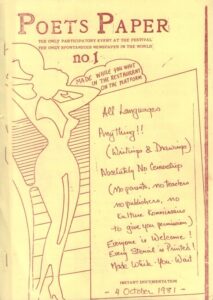 POETS PAPER
THE ONLY PARTICIPATORY EVENT AT THE FESTIVAL
THE ONLY SPONTANEOUS NEWSPAPER IN THE WORLD
no 1
MADE WHILE YOU WAIT
IN THE RESTAURANT
ON THE PLATFORM
All Languages
Anything!!
(Writings & Drawings)
Absolutely No Censorship
(no parents, no teachers
no publishers, no
Culture Kommissars
to give you permission)
Everyone is Welcome!
Every Stencil is Printed!
Made While-You-Wait
INSTANT DOCUMENTATION
- 4 October 1981 -